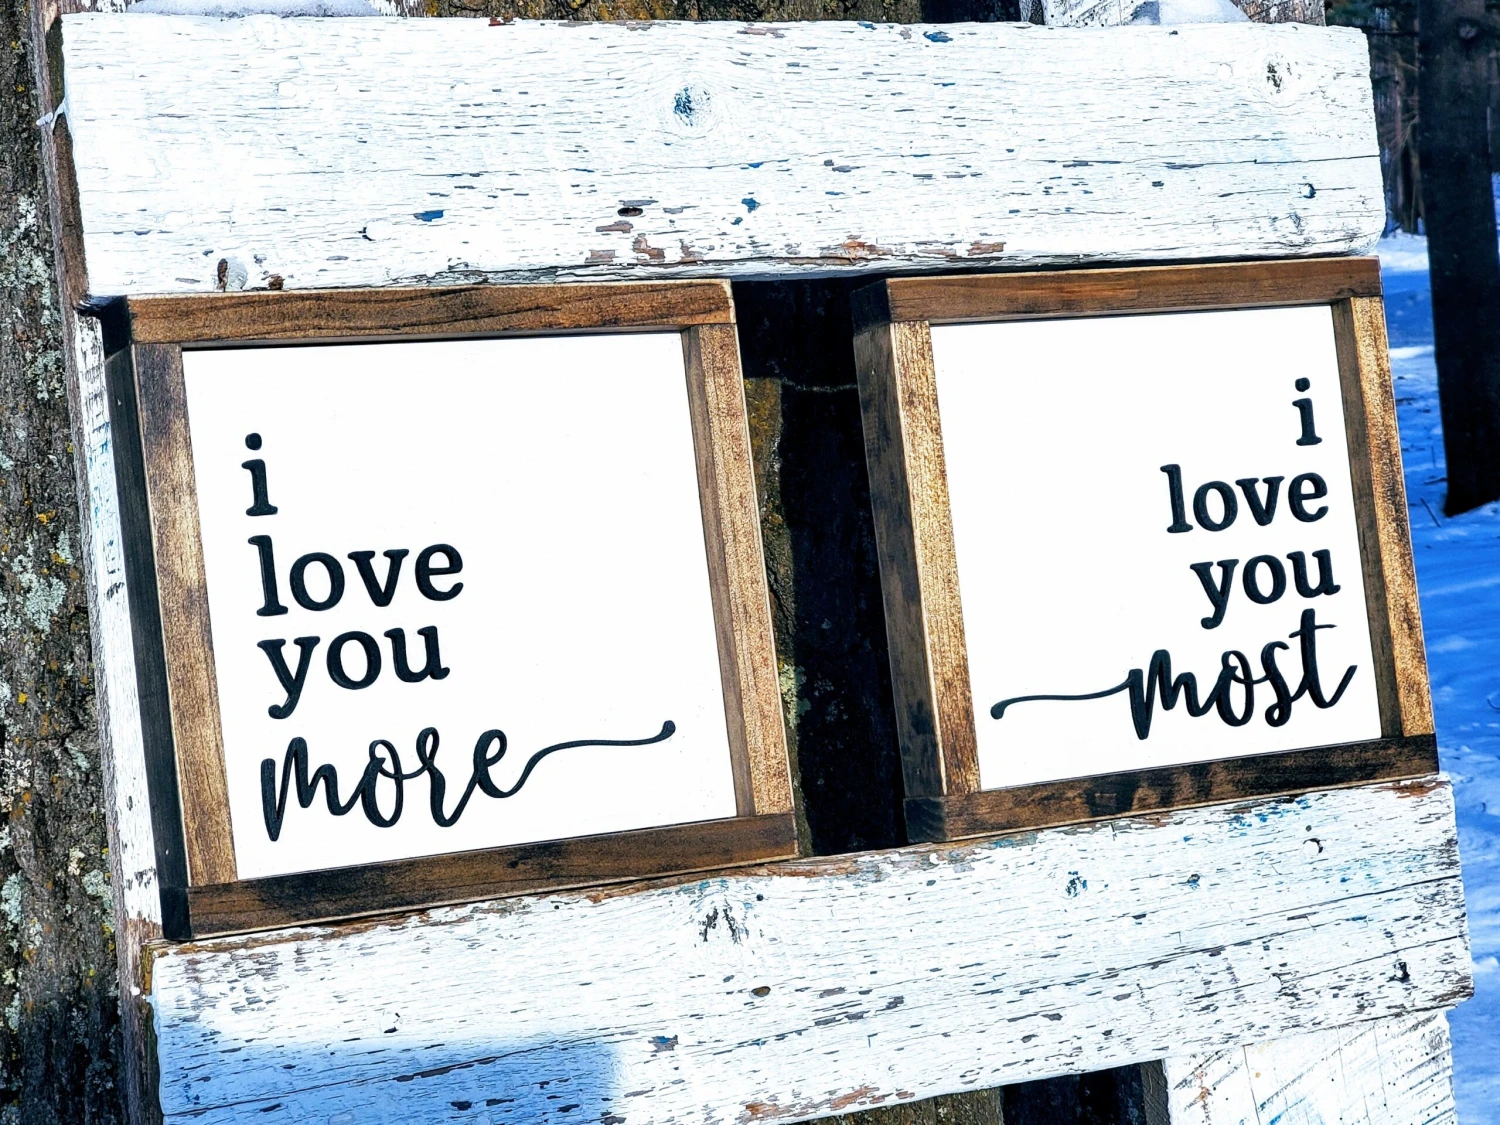 i
love
you
more
i
love
you
most